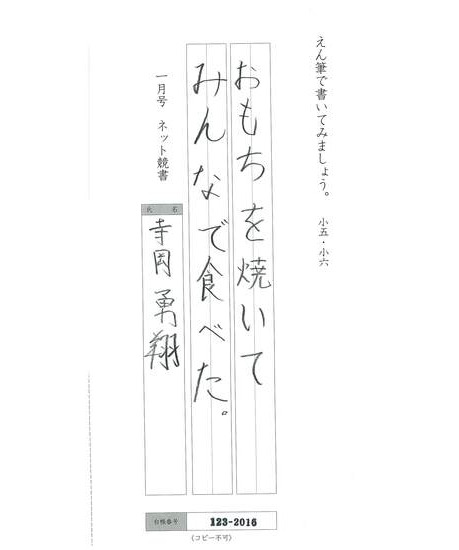 えん筆で書いてみましょう。 小五・小六
おもちを焼いて
みんなで食べた。
一月号 ネット競書
氏名
寺岡勇翔
台帳番号
123-2016
(コピー不可)